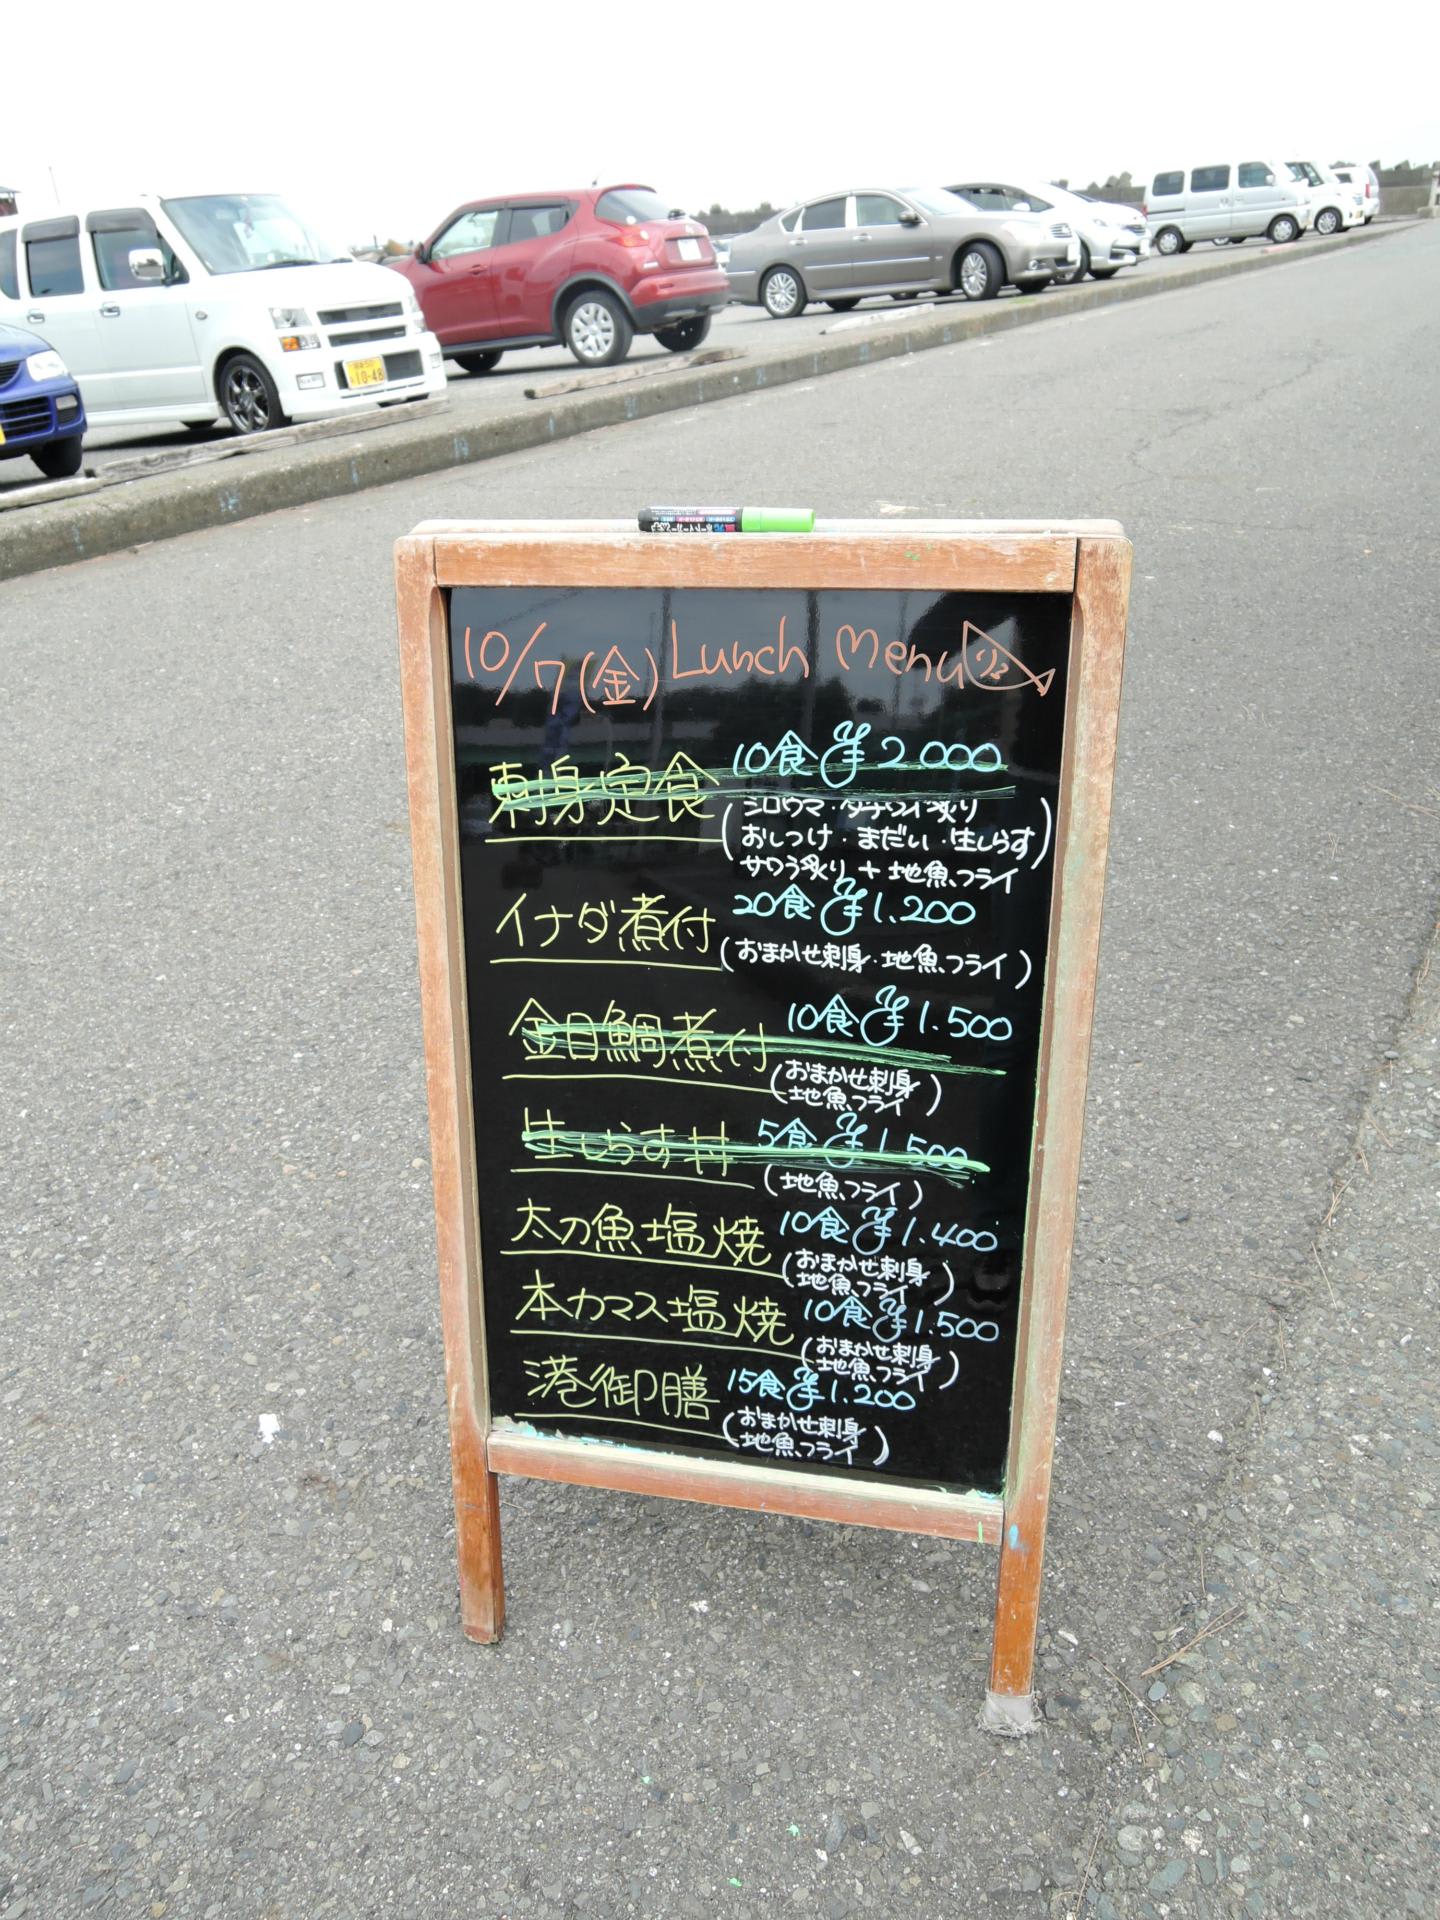 10/7(金) Lunch Menu
刺身定食 10食 ¥2000
(シロウマ・タチウオ炙り
おしつけ・まだい・生しらす
サワラ炙り + 地魚フライ)
イナダ煮付 20食 ¥1.200
(おまかせ刺身・地魚フライ)
金目鯛煮付 10食 ¥1.500
(おまかせ刺身
地魚フライ)
生しらす丼 5食 ¥1.500
(地魚フライ)
太刀魚塩焼 10食 ¥1.400
(おまかせ刺身
地魚フライ)
本カマス塩焼 10食 ¥1.500
(おまかせ刺身
地魚フライ)
港御膳 15食 ¥1.200
(おまかせ刺身
地魚フライ)
10-48